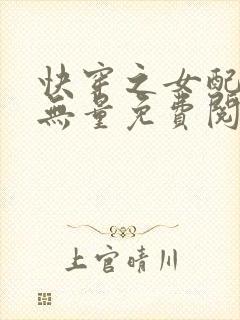 快穿之女配
無量免費閱
上官晴川